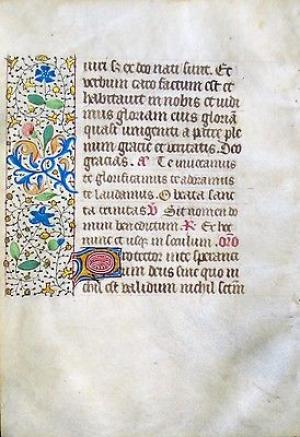 uiri sz ex deo nati sunt. Et
verbum caro factum est et
habitavit in nobis et vidi
mus gloriam eius gloria
quasi unigeniti a patre ple
num gracie et veritatis. Deo
gracias. A Te invocamus
te glorificamus te adoramus
te laudamus. O beata sanc
ta trinitas V Sit nomen do
mini benedictum. R Ex hoc
nunc et usqz in seculum. oro
Protector in te speranci
um deus sine quo ni
chil est validum nichil sctm